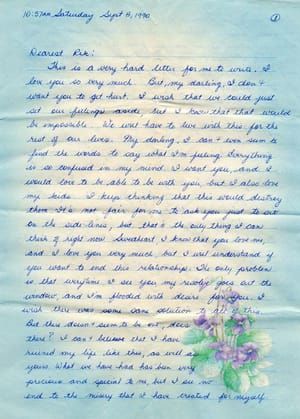 10:57am Saturday Sept 8, 1990
①
Dearest Rik:
This is a very hard letter for me to write. I
love you so very much. But, my darling, I don't
want you to get hurt. I wish that we could just
set our feelings aside, but I know that that would
be impossible. We will have to live with this for the
rest of our lives. My darling, I can't even seem to
find the words to say what I'm feeling. Everything
is so confused in my mind. I want you, and I
would love to be able to be with you, but I also love
my kids. I keep thinking that this would destroy
them. It's not fair for me to ask you just to sit
on the side-lines, but that's the only thing I can
think of right now. Sweetheart, I know that you love me,
and I love you very much, but I will understand if
you want to end this relationship. The only problem
is that everytime I see you my resolve goes out the
window, and I'm flooded with desire for you. I
wish there was some sane solution to all of this.
But there doesn't seem to be one, does
there? I can't believe that I have
ruined my life like this, as well as
yours. What we have had has been very
precious and special to me, but I see no
end to the misery that I have created for myself